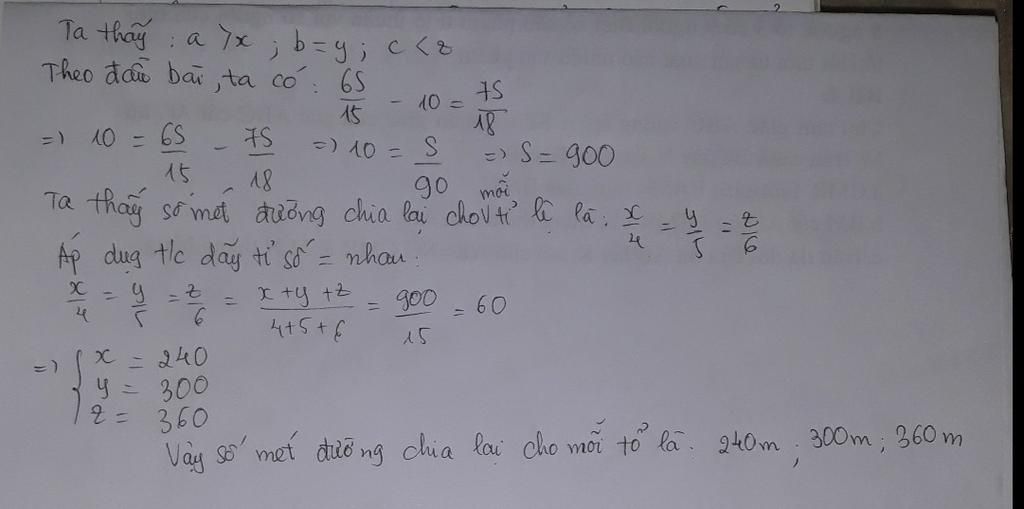 Ta thấy : a > x ; b = y ; c < z
Theo đầu bài, ta có : 6S/15 - 10 = 7S/18
=> 10 = 6S/15 - 7S/18 => 10 = S/90 => S = 900
Ta thấy số mét đường chia lại cho mỗi tỉ lệ là : x/4 = y/5 = z/6
Áp dụg t/c dãy tỉ số = nhau :
x/4 = y/5 = z/6 = x + y + z/4 + 5 + 6 = 900/15 = 60
=> { x = 240
y = 300
z = 360
Vậy số mét đường chia lại cho mỗi tổ là : 240m ; 300m ; 360m